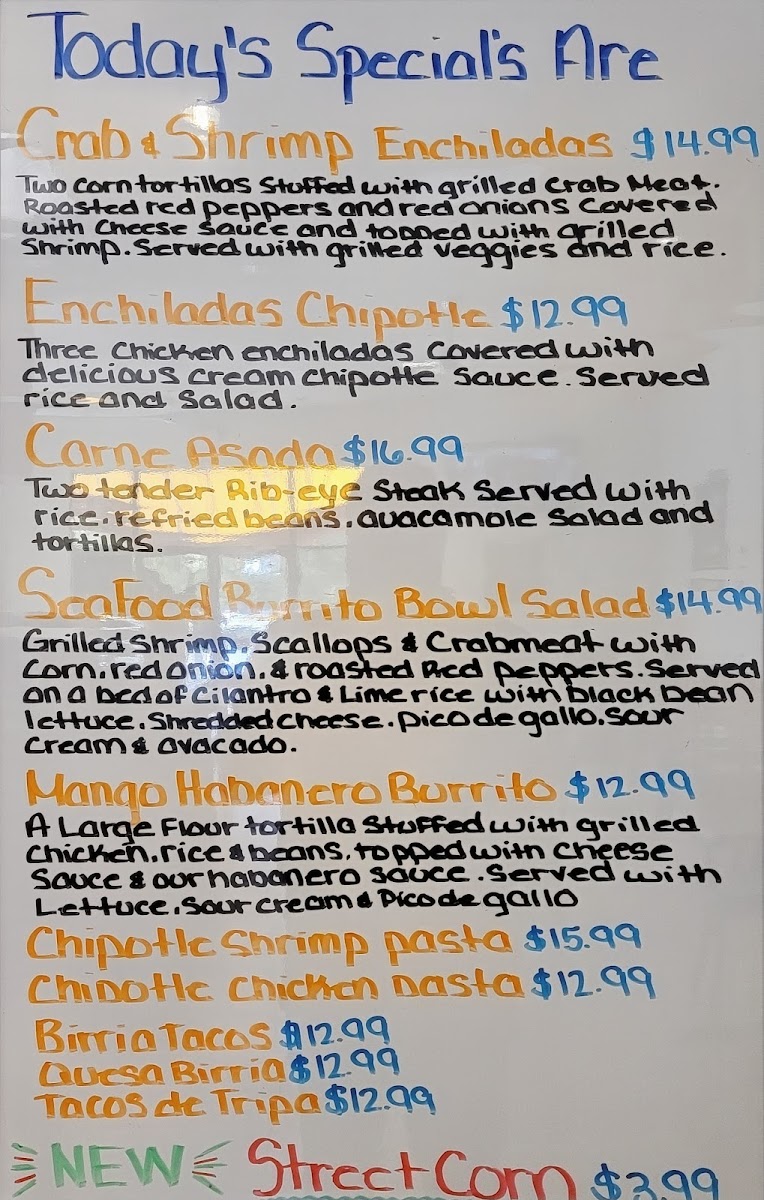 Today's Special's Are
Crab & Shrimp Enchiladas $14.99
Two corn tortillas Stuffed with grilled Crab Meat.
Roasted red peppers and red onions Covered
with Cheese Sauce and topped with grilled
Shrimp. Served with grilled veggies and rice.
Enchiladas Chipotle $12.99
Three Chicken enchiladas Covered with
delicious cream chipotle Sauce. Served
rice and Salad.
Carne Asada $16.99
Two tender Rib-eye Steak Served with
rice, refried beans, guacamole Salad and
tortillas.
Seafood Burrito Bowl Salad $14.99
Grilled Shrimp, Scallops & Crabmeat with
Corn, red onion, & roasted Red peppers. Served
on a bed of Cilantro & Lime rice with black bean
lettuce, Shredded cheese, pico de gallo, Sour
Cream & avacado.
Mango Habanero Burrito $12.99
A Large Flour tortilla Stuffed with grilled
Chicken, rice & beans, topped with Cheese
Sauce & our habanero sauce. Served with
Lettuce, Sour cream & Pico de gallo
Chipotle Shrimp pasta $15.99
Chipotle Chicken pasta $12.99
Birria Tacos $12.99
Quesa Birria $12.99
Tacos de Tripa $12.99
NEW Street Corn $3.99